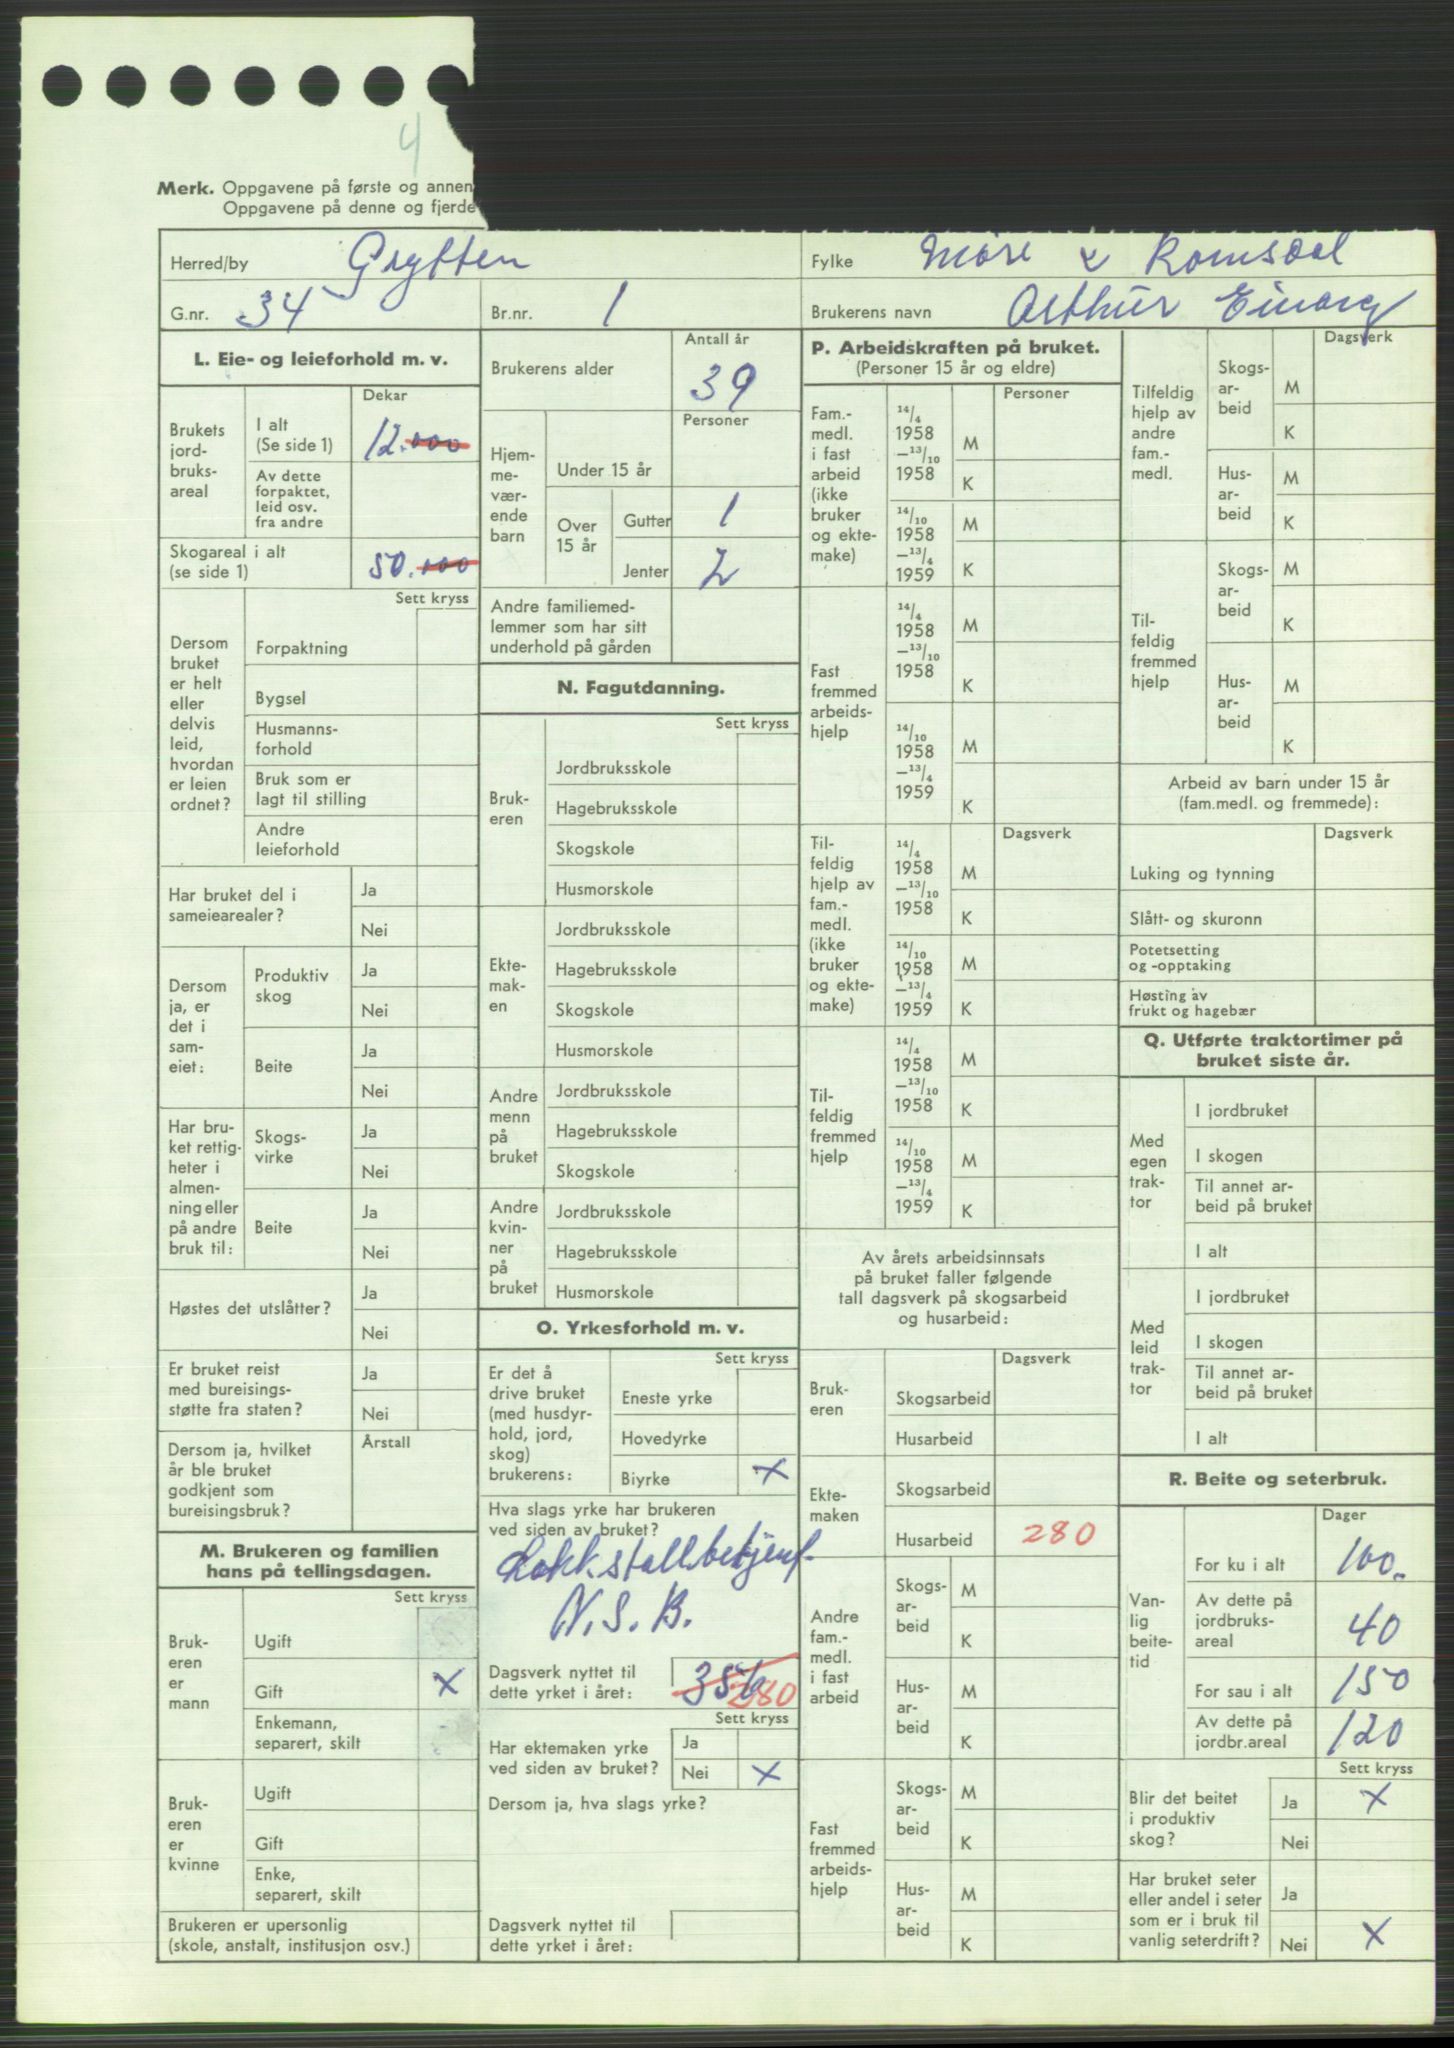 4
Merk. Oppgavene på første og annen
Oppgavene på denne og fjerde
Herred/by Grytten
Fylke Møre & Romsdal
G.nr. 34
Br.nr. 1
Brukerens navn Arthur Einang
L. Eie- og leieforhold m. v.
Dekar
Brukets jord-bruks-areal
I alt (Se side 1) 12.000
Av dette forpaktet, leid osv. fra andre
Skogareal i alt (se side 1) 50.000
Sett kryss
Dersom bruket er helt eller delvis leid, hvordan er leien ordnet?
Forpaktning
Bygsel
Husmanns-forhold
Bruk som er lagt til stilling
Andre leieforhold
Har bruket del i sameiearealer?
Ja
Nei
Dersom ja, er det i sam-eiet:
Produktiv skog
Ja
Nei
Beite
Ja
Nei
Har bru-ket rettig-heter i almen-ning eller på andre bruk til:
Skogs-virke
Ja
Nei
Beite
Ja
Nei
Høstes det utslåtter?
Ja
Nei
Er bruket reist med bureisings-støtte fra staten?
Ja
Nei
Dersom ja, hvilket år ble bruket godkjent som bureisingsbruk?
Årstall
M. Brukeren og familien hans på tellingsdagen.
Sett kryss
Bruk-eren er mann
Ugift
Gift X
Enkemann, separert, skilt
Bruk-eren er kvinne
Ugift
Gift
Enke, separert, skilt
Brukeren er upersonlig (skole, anstalt, institusjon osv.)
Antall år
Brukerens alder 39
Personer
Hjem-me-vær-ende barn
Under 15 år
Over 15 år
Gutter 1
Jenter 2
Andre familiemed-lemmer som har sitt underhold på gården
N. Fagutdanning.
Sett kryss
Bruk-eren
Jordbruksskole
Hagebruksskole
Skogskole
Husmorskole
Ekte-mak-en
Jordbruksskole
Hagebruksskole
Skogskole
Husmorskole
Andre menn på bruket
Jordbruksskole
Hagebruksskole
Skogskole
Andre kvin-ner på bruket
Jordbruksskole
Hagebruksskole
Husmorskole
O. Yrkesforhold m. v.
Sett kryss
Er det å drive bruket (med husdyr-hold, jord, skog) brukerens:
Eneste yrke
Hovedyrke
Biyrke X
Hva slags yrke har brukeren ved siden av bruket?
Lokkstallbetjent.
N.S.B.
Dagsverk nyttet til dette yrket i året: 280
Sett kryss
Har ektemaken yrke ved siden av bruket?
Ja
Nei X
Dersom ja, hva slags yrke?
Dagsverk nyttet til dette yrket i året:
P. Arbeidskraften på bruket.
(Personer 15 år og eldre)
Personer
Fam.-medl. i fast arbeid (ikke bruker og ekte-make)
14/4 1958 —13/10 1958
M
K
14/10 1958 —13/4 1959
M
K
Fast fremmed arbeids-hjelp
14/4 1958 —13/10 1958
M
K
14/10 1958 —13/4 1959
M
K
Dagsverk
Til-feldig hjelp av fam.-medl. (ikke bruker og ekte-make)
14/4 1958 —13/10 1958
M
K
14/10 1958 —13/4 1959
M
K
Til-feldig fremmed hjelp
14/4 1958 —13/10 1958
M
K
14/10 1958 —13/4 1959
M
K
Av årets arbeidsinnsats på bruket faller følgende tall dagsverk på skogsarbeid og husarbeid:
Dagsverk
Bruk-eren
Skogsarbeid
Husarbeid
Ekte-maken
Skogsarbeid
Husarbeid 280
Andre fam.-medl. i fast arbeid
Skogs-ar-beid
M
K
Hus-ar-beid
M
K
Fast fremmed arbeids-hjelp
Skogs-ar-beid
M
K
Hus-ar-beid
M
K
Dagsverk
Tilfeldig hjelp av andre fam.-medl.
Skogs-ar-beid
M
K
Hus-ar-beid
M
K
Til-feldig fremmed hjelp
Skogs-ar-beid
M
K
Hus-ar-beid
M
K
Arbeid av barn under 15 år (fam.medl. og fremmede):
Dagsverk
Luking og tynning
Slått- og skuronn
Potetsetting og -opptaking
Høsting av frukt og hagebær
Q. Utførte traktortimer på bruket siste år.
Med egen trak-tor
I jordbruket
I skogen
Til annet ar-beid på bruket
I alt
Med leid trak-tor
I jordbruket
I skogen
Til annet ar-beid på bruket
I alt
R. Beite og seterbruk.
Dager
Van-lig beite-tid
For ku i alt 100.
Av dette på jordbruks-areal 40
For sau i alt 150
Av dette på jordbr.areal 120
Sett kryss
Blir det beitet i produktiv skog?
Ja X
Nei
Har bruket seter eller andel i seter som er i bruk til vanlig seterdrift?
Ja
Nei X